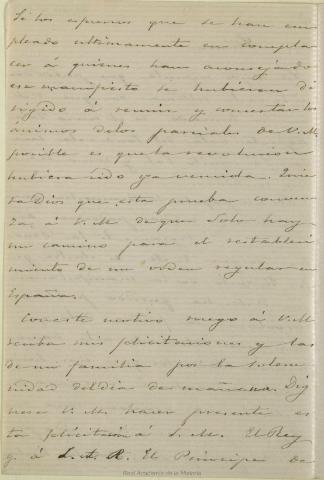 Si los esfuerzos que se han em
pleado ultimamente en compla
cer á quienes han aconsejado
ese manifiesto se hubieran di
rigido á reunir y concertar los
animos delos parciales de V.M.
posible es que la revolucion
hubiera sido ya vencida. Quie
ra Dios que esta prueba conven
za á V.M. de que solo hay
un camino para el restableci
miento de un orden regular en
España.
Con este motivo ruego á V.M.
reciba mis felicitaciones y las
de mi familia por la solem
nidad del dia de mañana. Dig
nese V.M. hacer presente es
ta felicitacion á S.M. El Rey
y á S.A.R. El Principe de
Real Academia de la Historia